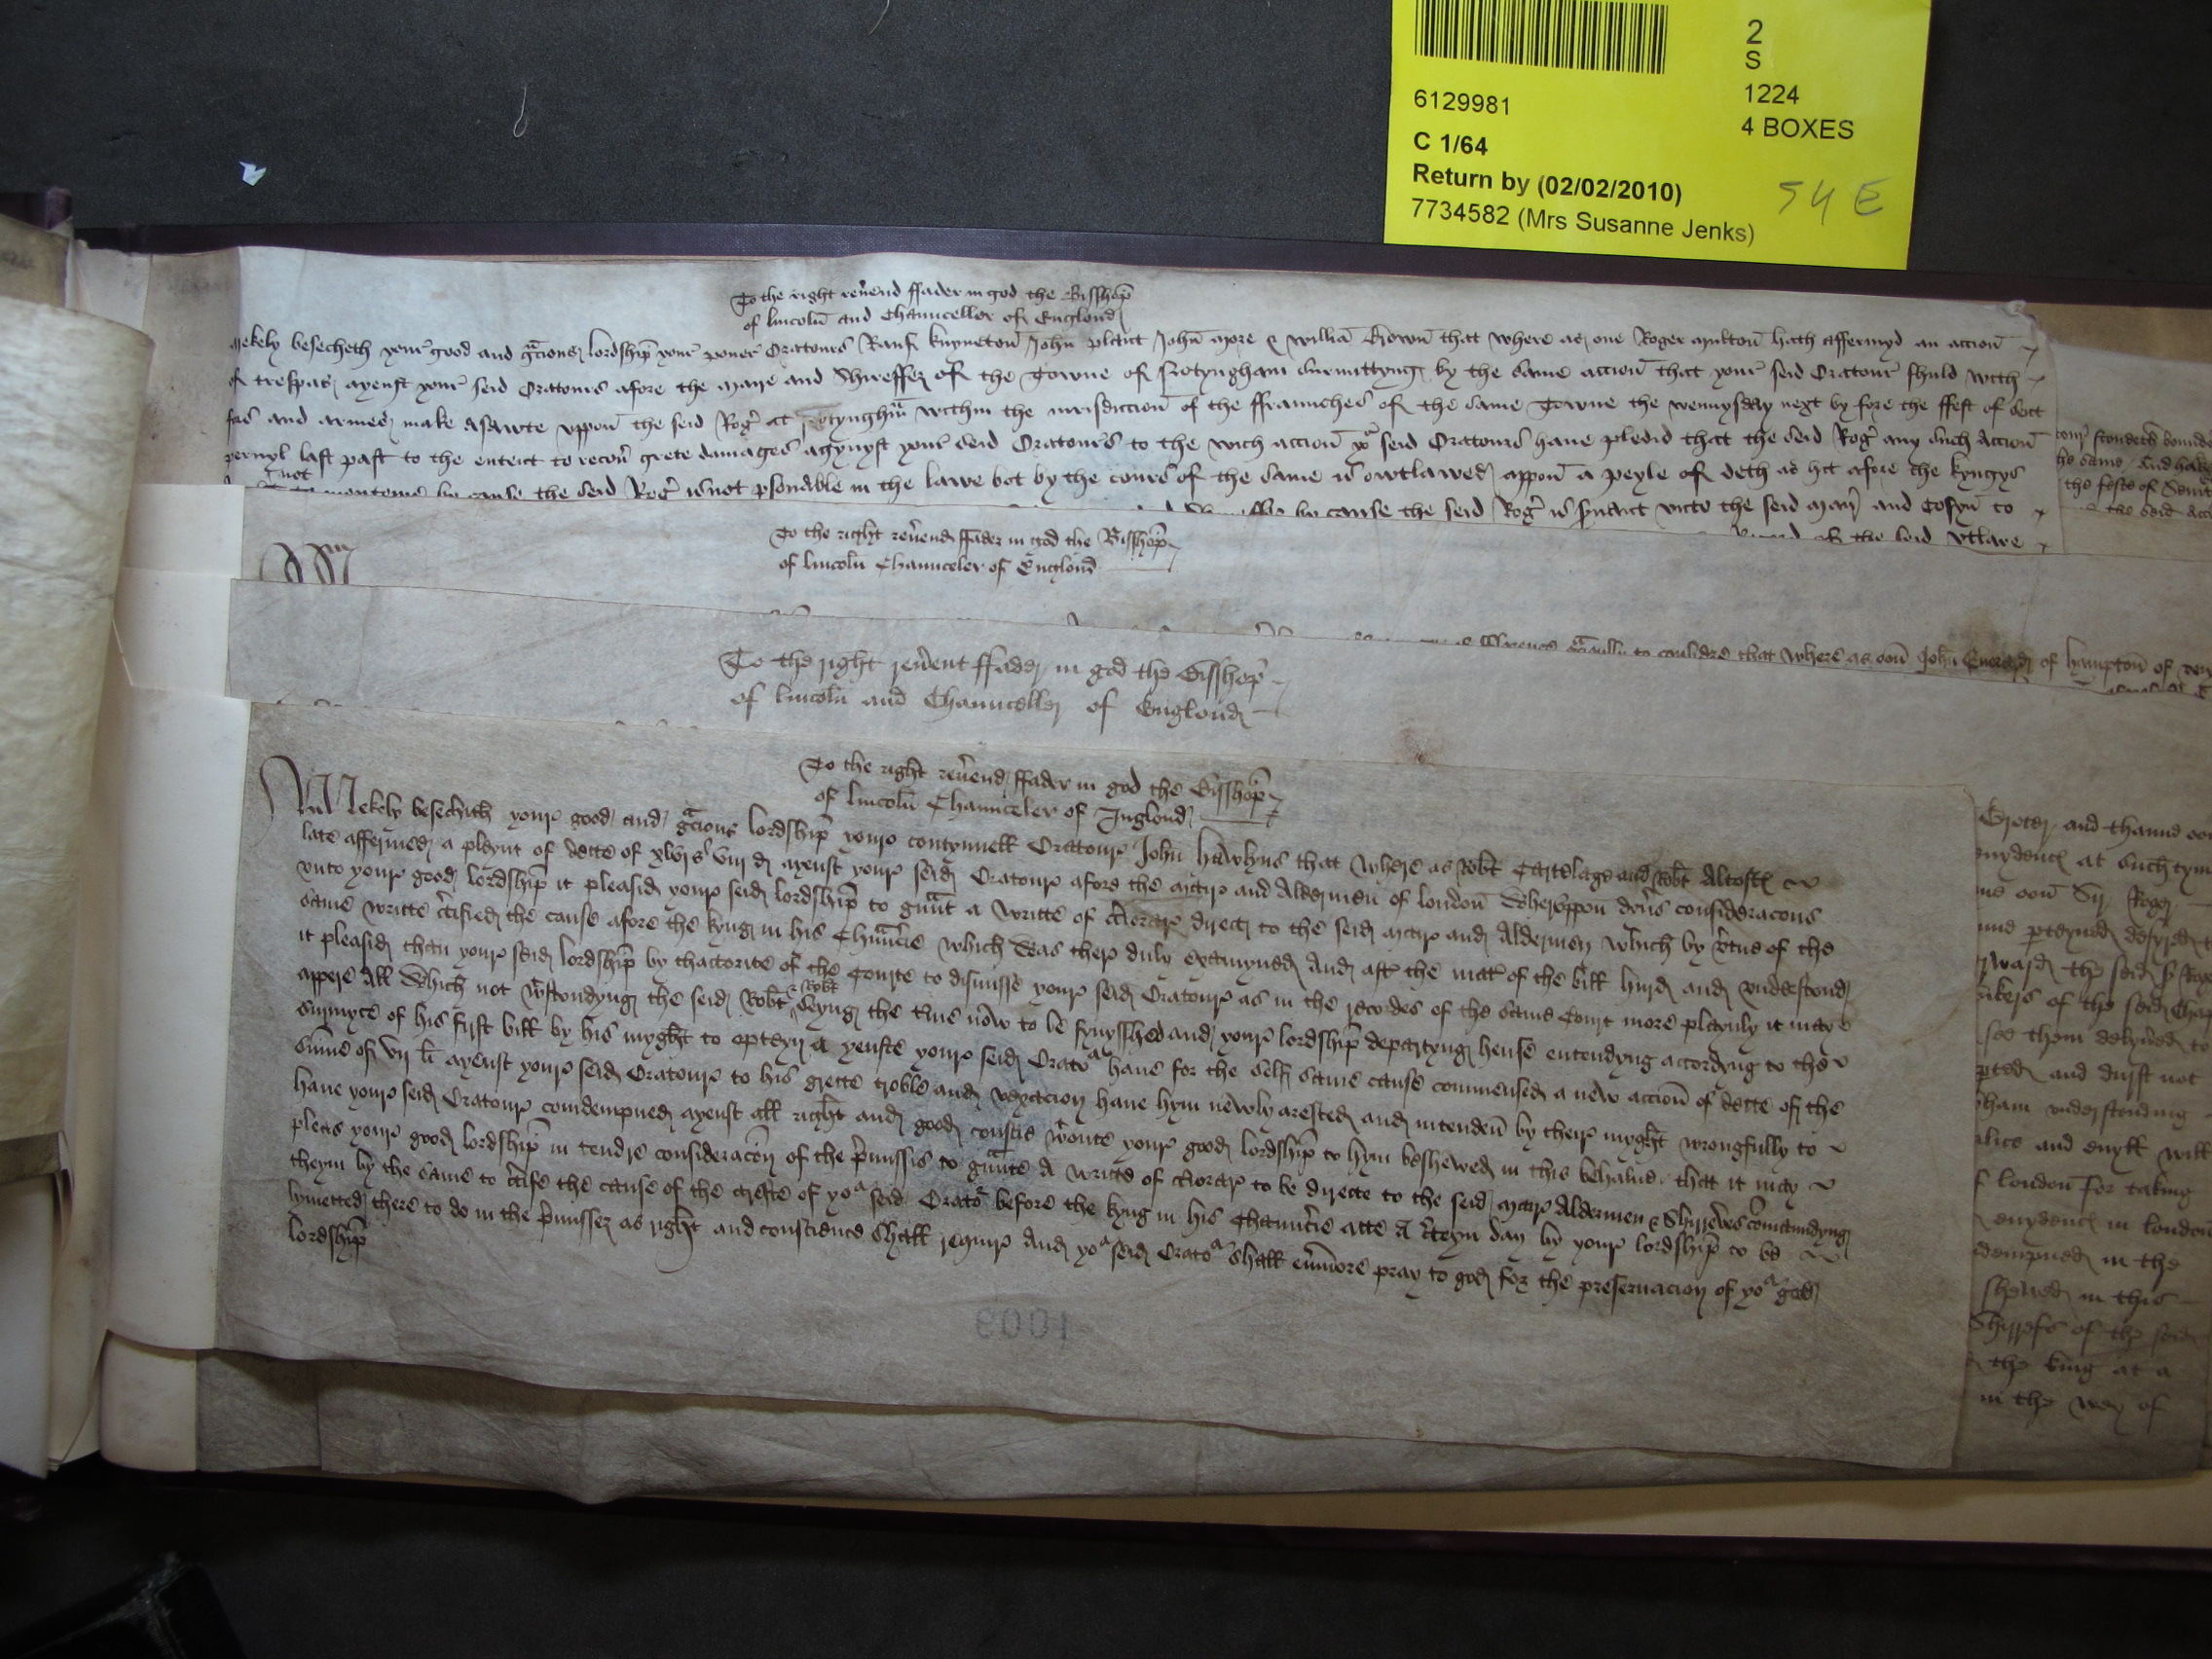 2
S
6129981
1224
4 BOXES
C 1/64
Return by (02/02/2010)
S4E
7734582 (Mrs Susanne Jenks)
To the right rev'end ffader in god the Bisshop
of lincoln and Chaunceller of Englond
Mekely besecheth your good and gracious lordship your pouer Oratours Rauf knyueton John plait John More & william Brown that where as one Roger Mylton hath affermyd an accion
of trespas ayenst your seid Oratours afore the Maire and Shireffez of the Towne of Notyngham surmittyng by the same accion that your seid Oratours shuld with
fors and armes make asawte uppon the seid Rog' at Notyngham within the iurisdiccion of the ffraunches of the same Towne the wennysday next by fore the ffest of Seit
pernyl last past to the entent to recou' grete damages ageynyst your seid Oratours to the wich accion yor seid Oratours haue pledid that the seid Rog' any such accion
not
by cause the seid Rog' is not p'sonable in the lawe bot by the cours of the same is owtlawed appon a peyle of deth as hit afore the kyngys
by cause the seid Rog' is s'uant unto the seid Mair and Cosyn to
of the seid utlare
To the right rev'end ffader in god the Bisshop
of lincoln Chaunceler of Englond
to consider that where as oon John of hampton of
To the right rev'ent ffader in god the Bisshop
of lincoln and Chaunceller of Englond
To the right rev'end ffader in god the Bisshop
of lincoln Chaunceler of Inglond
Mekely besechith your good and gracious lordship your contynuell Oratour John hawkyns that where as Rob't Cartelage and Rob't Altoft
late affermed a pleynt of dette of xlvjs viij d ayenst your seid Oratour afore the Mair and Aldermen of london Wheruppon dyu's consideracons
unto your good lordship it pleasid your seid lordship to graunt a writte of c'tiorar' direct to the seid Mair and Aldermen which by v'tue of the
same writte c'tified the cause afore the kyng in his Chauncerie which was ther duly examyned And aft' the mat' of the bill hurd and understond
it pleasid than your seid lordship by thactorite of the Courte to dismisse your seid Oratour as in the recordes of the same Court more playnly it may
& Rob't
appere All which not w'stondyng the seid Rob't seyng the t'me now to be fynysshed and your lordship departyng hense entendyng accordyng to the
surmyte of his fyrst bill by his myght to opteyn a yenste your seid Orator haue for the self same cause commensed a new accion of dette of the
summe of vij li ayenst your seid Oratour to his grette troble and vexacion haue hym newly arested and intenden by their myght wrongfully to
haue your seid Oratour comdempned ayenst all right and good consciens w'oute your good lordship to hym be shewed in this behalue that it may
pleas your good lordship in tendre consideracon of the p'missis to graunte A writte of c'tiorar' to be directe to the seid Mair Aldermen & Shirreves comaundyng
theym by the same to c'tife the cause of the areste of yor seid Orator before the kyng in his Chauncerie atte A c'teyn day by your lordship to be
lymetted there to do in the p'missez as right and conscience shall requir And yor seid Orator shall eu'more pray to god for the preseruacion of yor good
lordship
1003
stondeth bounde
the same And
the feste of
the seid
and thanne oon
euydenc' at such tym
oon Sir Roger
desyred
the seid
of the seid
them delyu'ed to
and durst not
understonding
malice and euyll will
of london for taking
euydenc' in london
dempned in the
shewed in this
Shirrefs of the seid
the king at a
in the wey of